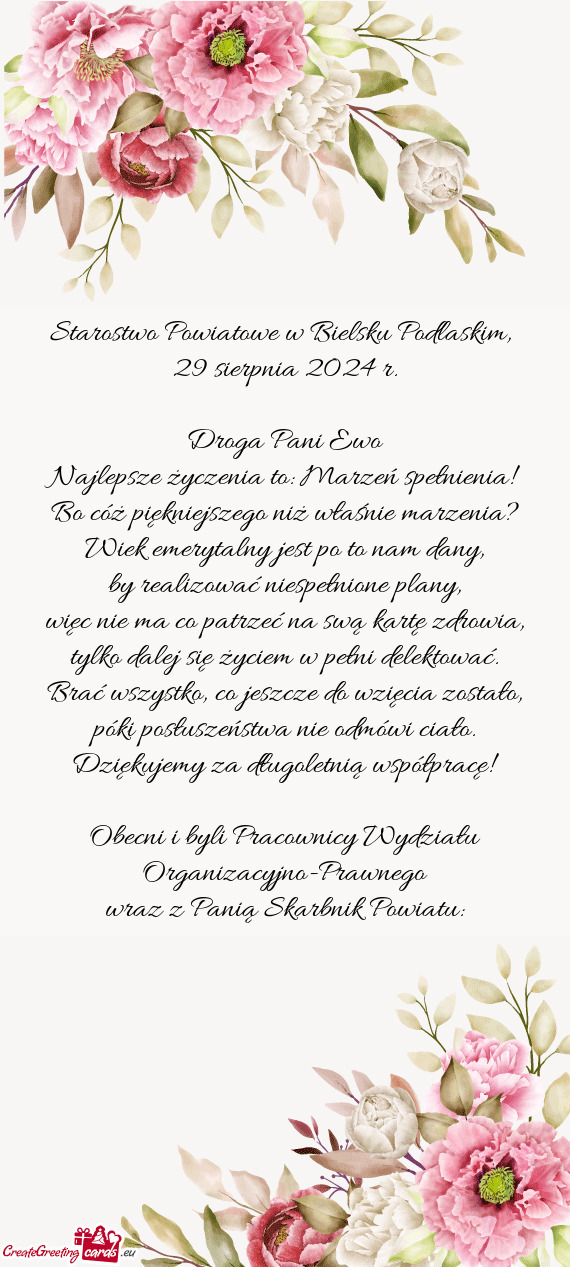 Starostwo Powiatowe w Bielsku Podlaskim,
29 sierpnia 2024 r.
Droga Pani Ewo
Najlepsze życzenia to: Marzeń spełnienia!
Bo cóż piękniejszego niż właśnie marzenia?
Wiek emerytalny jest po to nam dany,
by realizować niespełnione plany,
więc nie ma co patrzeć na swą kartę zdrowia,
tylko dalej się życiem w pełni delektować.
Brać wszystko, co jeszcze do wzięcia zostało,
póki posłuszeństwa nie odmówi ciało.
Dziękujemy za długoletnią współpracę!
Obecni i byli Pracownicy Wydziału
Organizacyjno-Prawnego
wraz z Panią Skarbnik Powiatu:
CreateGreeting cards .eu